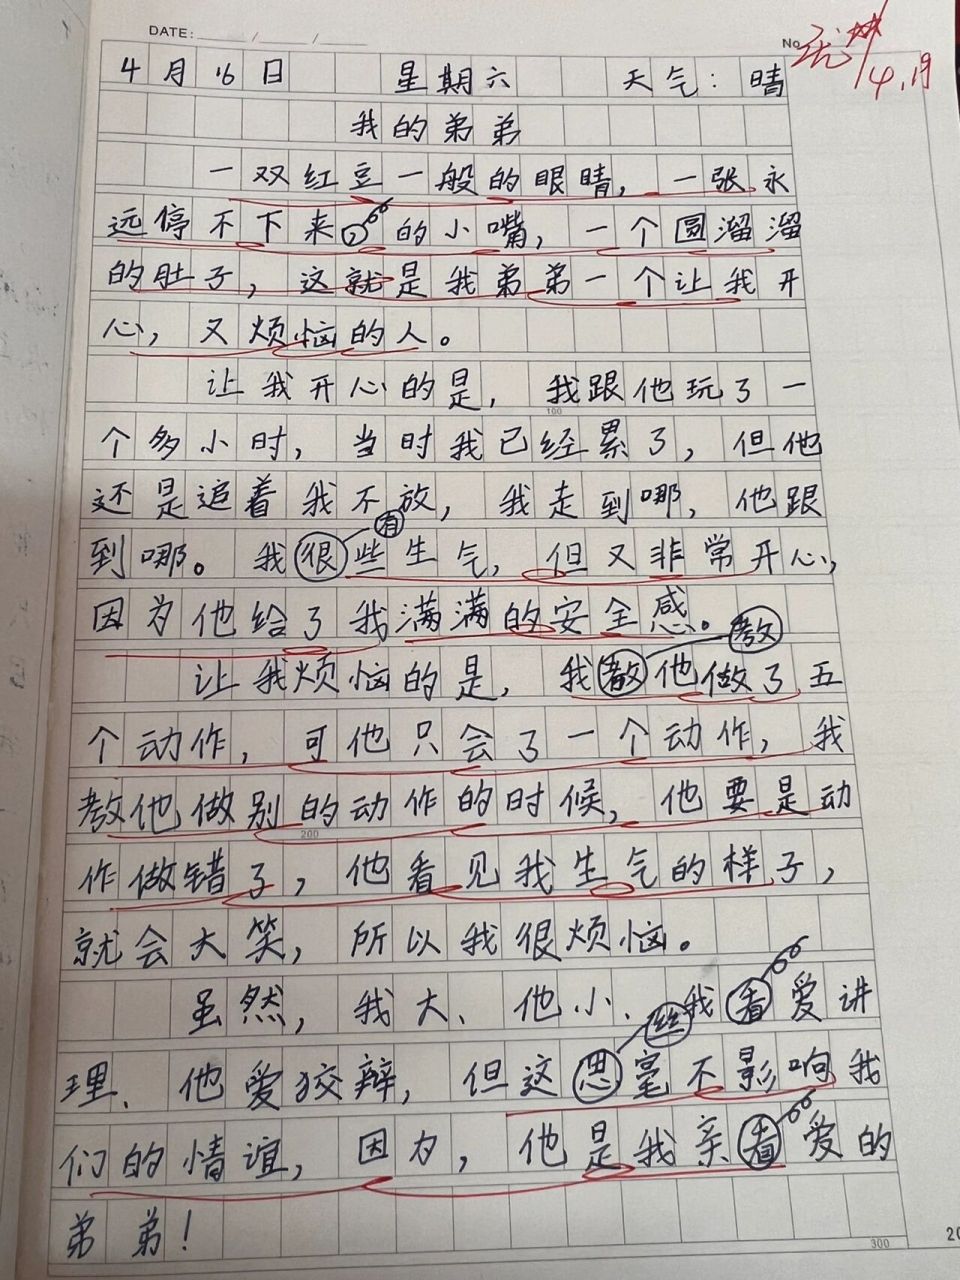 DATE: ____ / ____ / ____
No
4.19
4月16日 星期六 天气：晴
我的弟弟
一双红豆一般的眼睛，一张永
远停不下来的小嘴，一个圆溜溜
的肚子，这就是我弟弟一个让我开
心，又烦恼的人。
让我开心的是，我跟他玩了一
100
个多小时，当时我已经累了，但他
还是追着我不放，我走到哪，他跟
有
到哪。我很些生气，但又非常开心，
因为他给了我满满的安全感。
教
让我烦恼的是，我教他做了五
个动作，可他只会了一个动作，我
教他做别的动作的时候，他要是动
200
作做错了，他看见我生气的样子，
就会大笑，所以我很烦恼。
虽然，我大、他小、我看爱讲
丝
理、他爱狡辩，但这思毫不影响我
们的情谊，因为，他是我亲看爱的
弟弟！
300
20